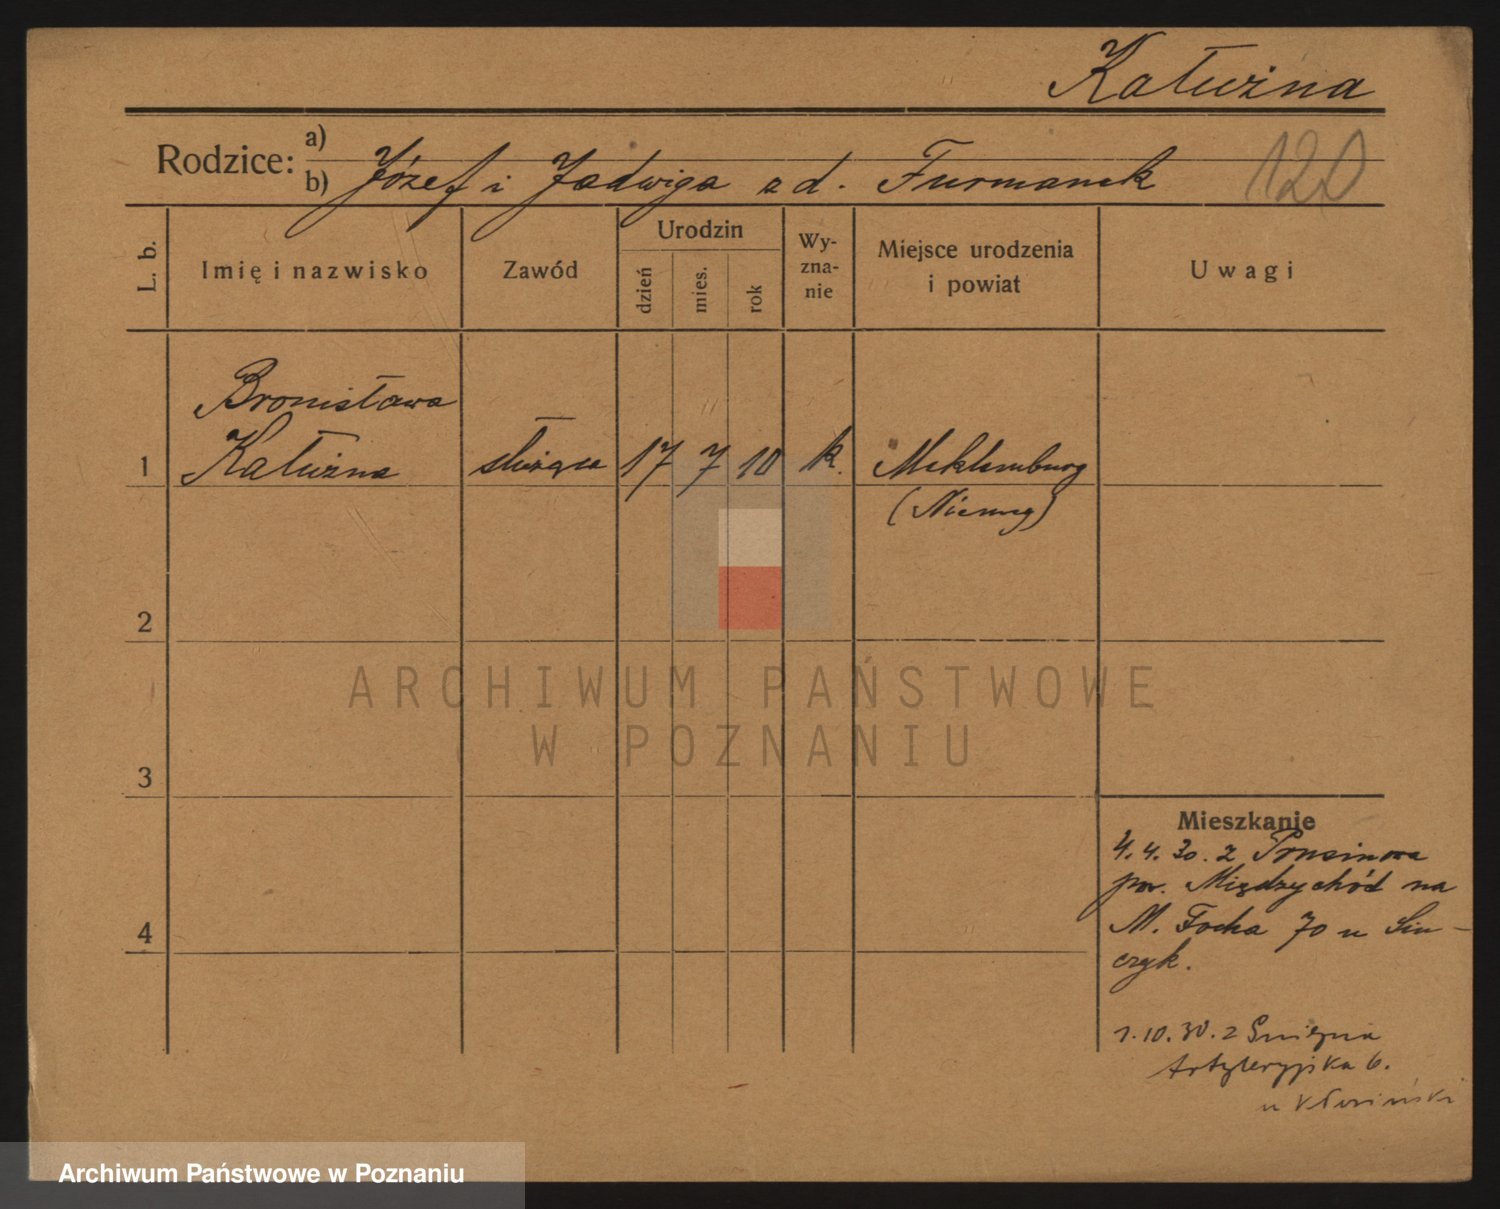 Kałużna
Rodzice: a)
b) Józef i Jadwiga z d. Furmanek
120
L. b.
Imię i nazwisko
Zawód
Urodzin
dzień
mies.
rok
Wy-
zna-
nie
Miejsce urodzenia
i powiat
Uwagi
Bronisława
1 Kałużna służąca 17 7 10 k. Meklemburg
(Niemcy)
2
3
4
ARCHIWUM PAŃSTWOWE
W POZNANIU
Mieszkanie
4.4.30. z Prusimia
pow. Międzychód na
M. Focha 70 u
czyk.
1.10.30. z Gniezna
Artyleryjska 6.
u
Archiwum Państwowe w Poznaniu